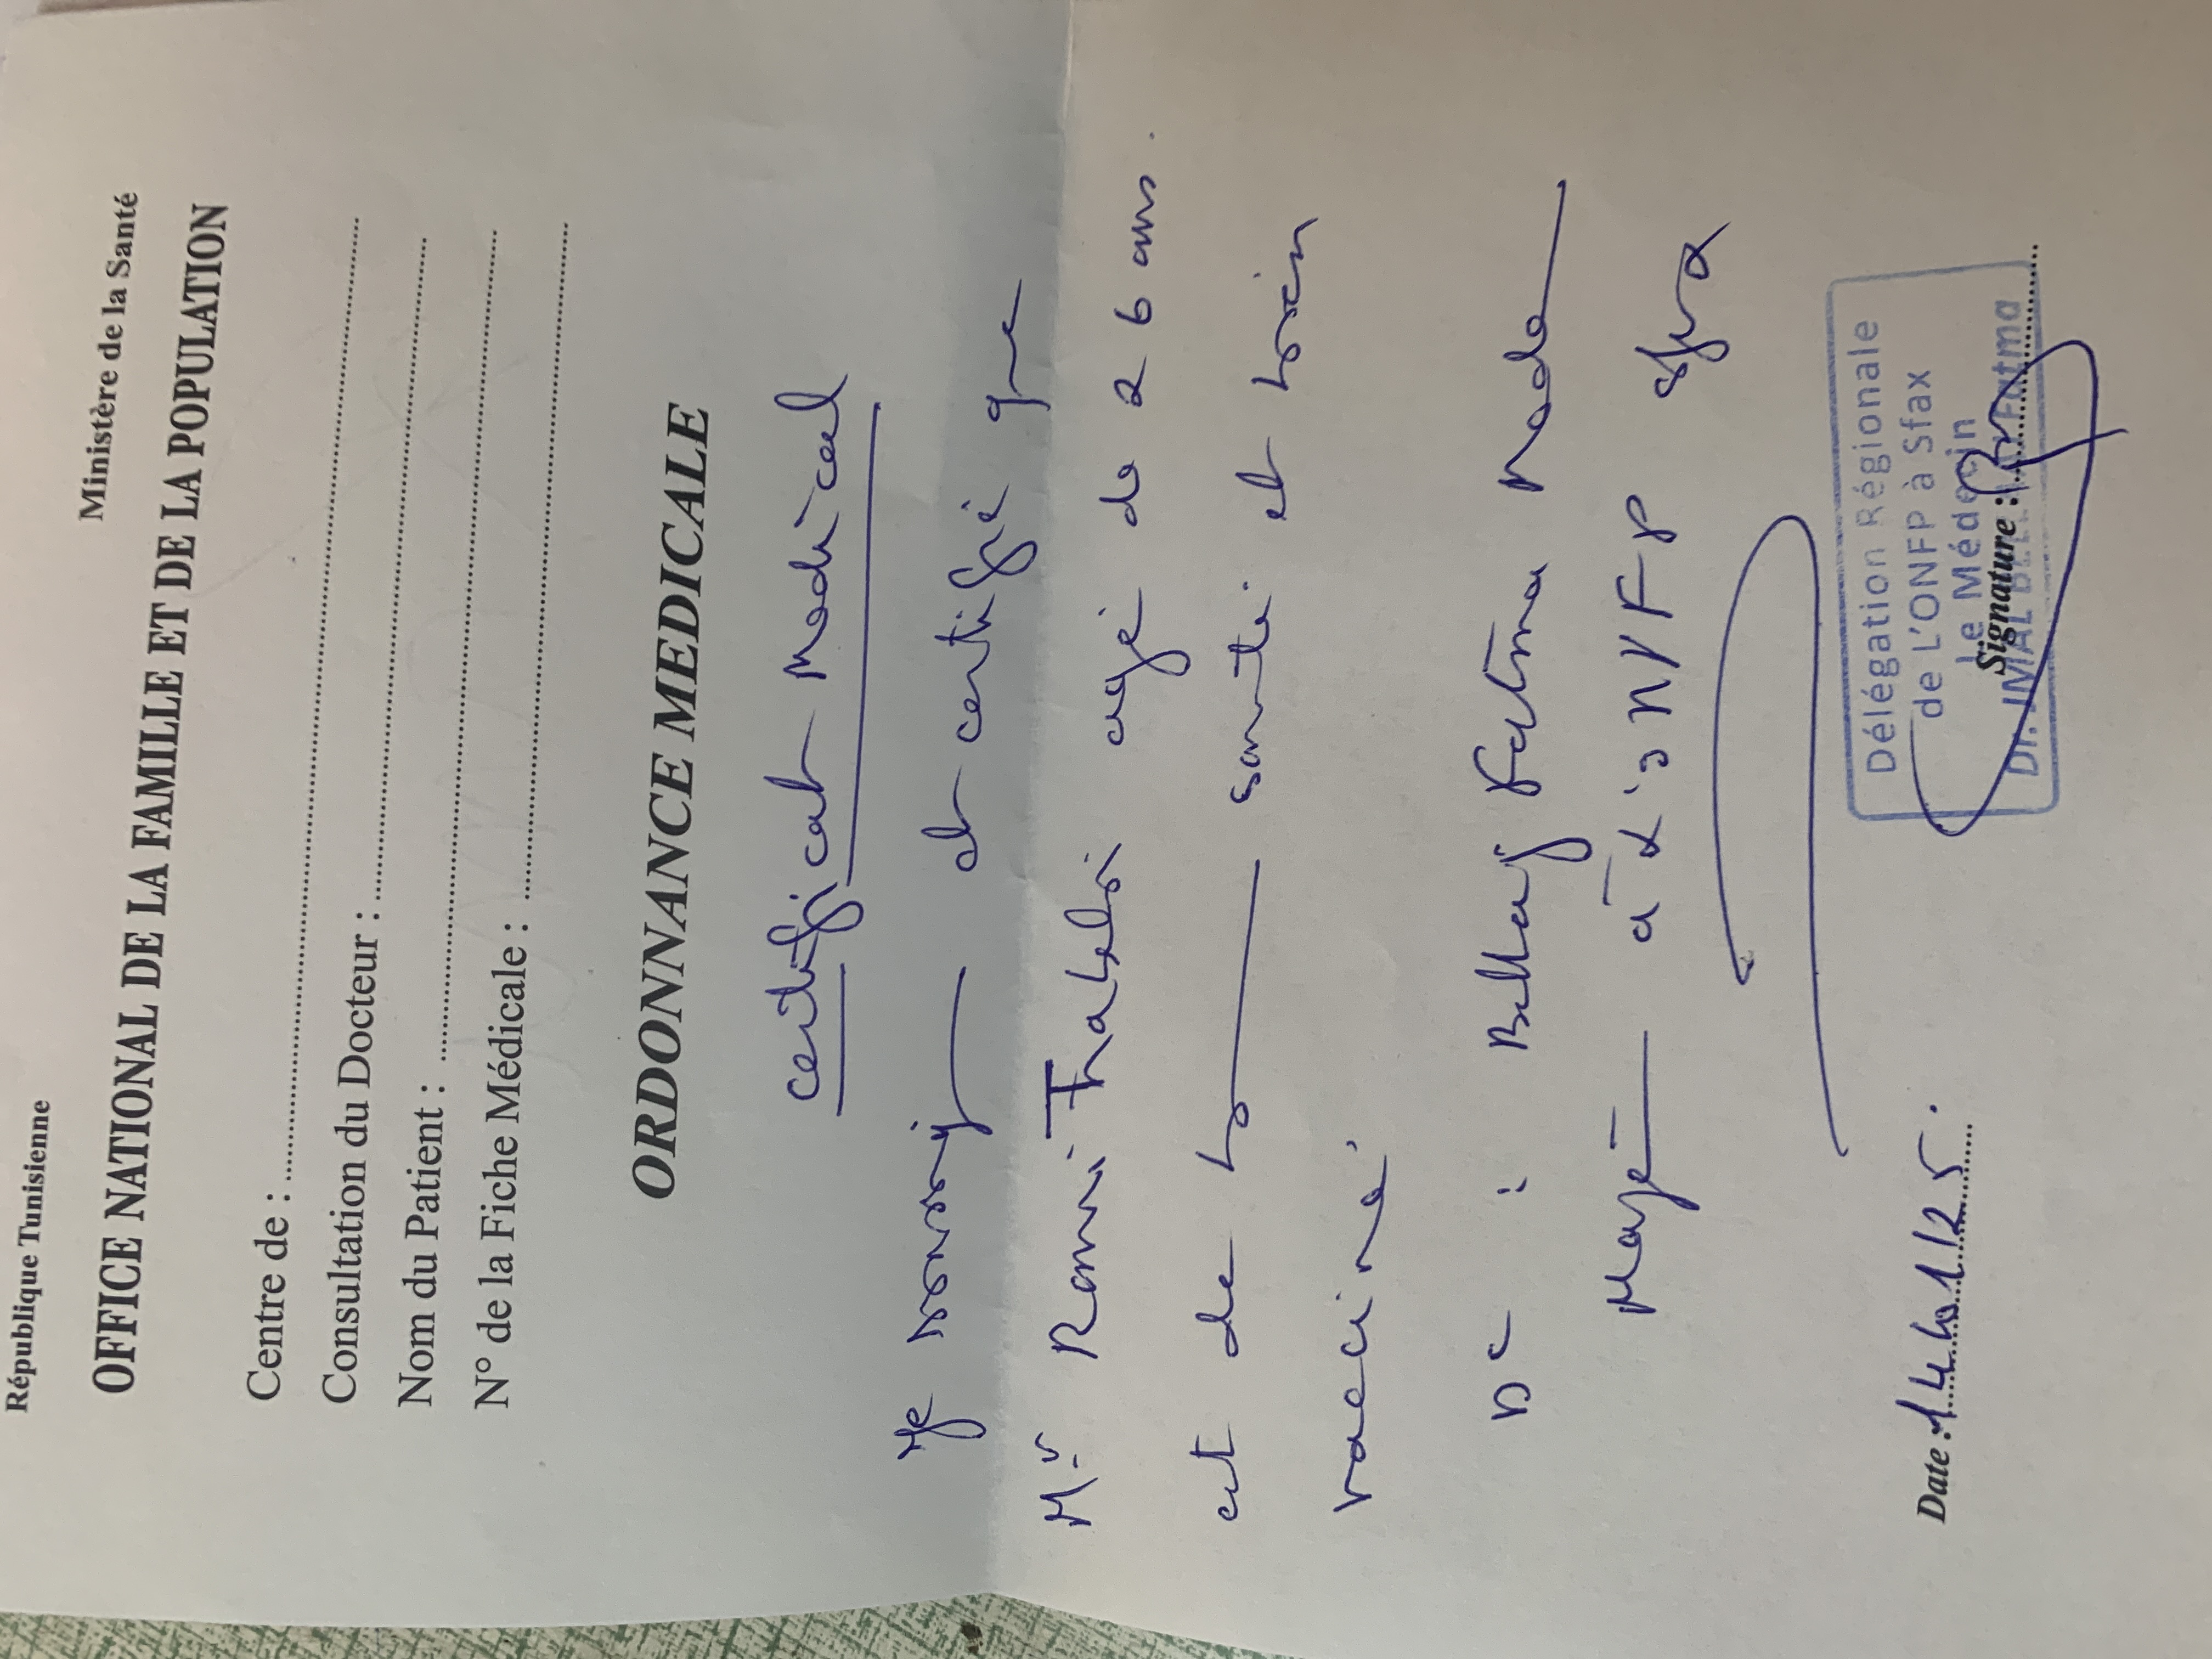 République Tunisienne
Ministère de la Santé
OFFICE NATIONAL DE LA FAMILLE ET DE LA POPULATION
Centre de :
Consultation du Docteur :
Nom du Patient :
N° de la Fiche Médicale :
ORDONNANCE MEDICALE
certificat Medical
Je et certifie que
Mr Rami Trabelsi agé de 26 ans.
est de bonne santé et bien
vacciné.
Dr : Belhaj Fatma
à L'ONFP sfax
Délégation Régionale
de L'ONFP à Sfax
Le Médecin
Dr. Fatma
Date :
Signature :